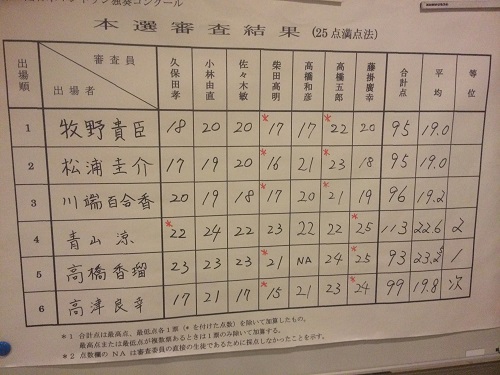 マンドリン独奏コンクール
本選審査結果 (25点満点法)
出場順 審査員 出場者 久保田孝 小林由直 佐々木敏 柴田高明 高橋和彦 高橋五郎 藤掛廣幸 合計点 平均 等位
1 牧野貴臣 18 20 20 *17 17 *22 20 95 19.0
2 松浦圭介 17 19 20 *16 21 *23 18 95 19.0
3 川端百合香 20 19 18 *17 20 *21 19 96 19.2
4 青山涼 *22 24 22 23 22 22 *25 113 22.6 2
5 高橋香瑠 23 23 23 *21 NA 24 *25 93 23.25 1
6 高津良幸 17 21 17 *15 21 23 *24 99 19.8 次
*1 合計点は最高点、最低点各1票(*を付けた点数)を除いて加算したもの。
最高点または最低点が複数票あるときは1票のみ除いて加算する。
*2 点数欄のNAは審査委員の直接の生徒であるために採点しなかったことを示す。